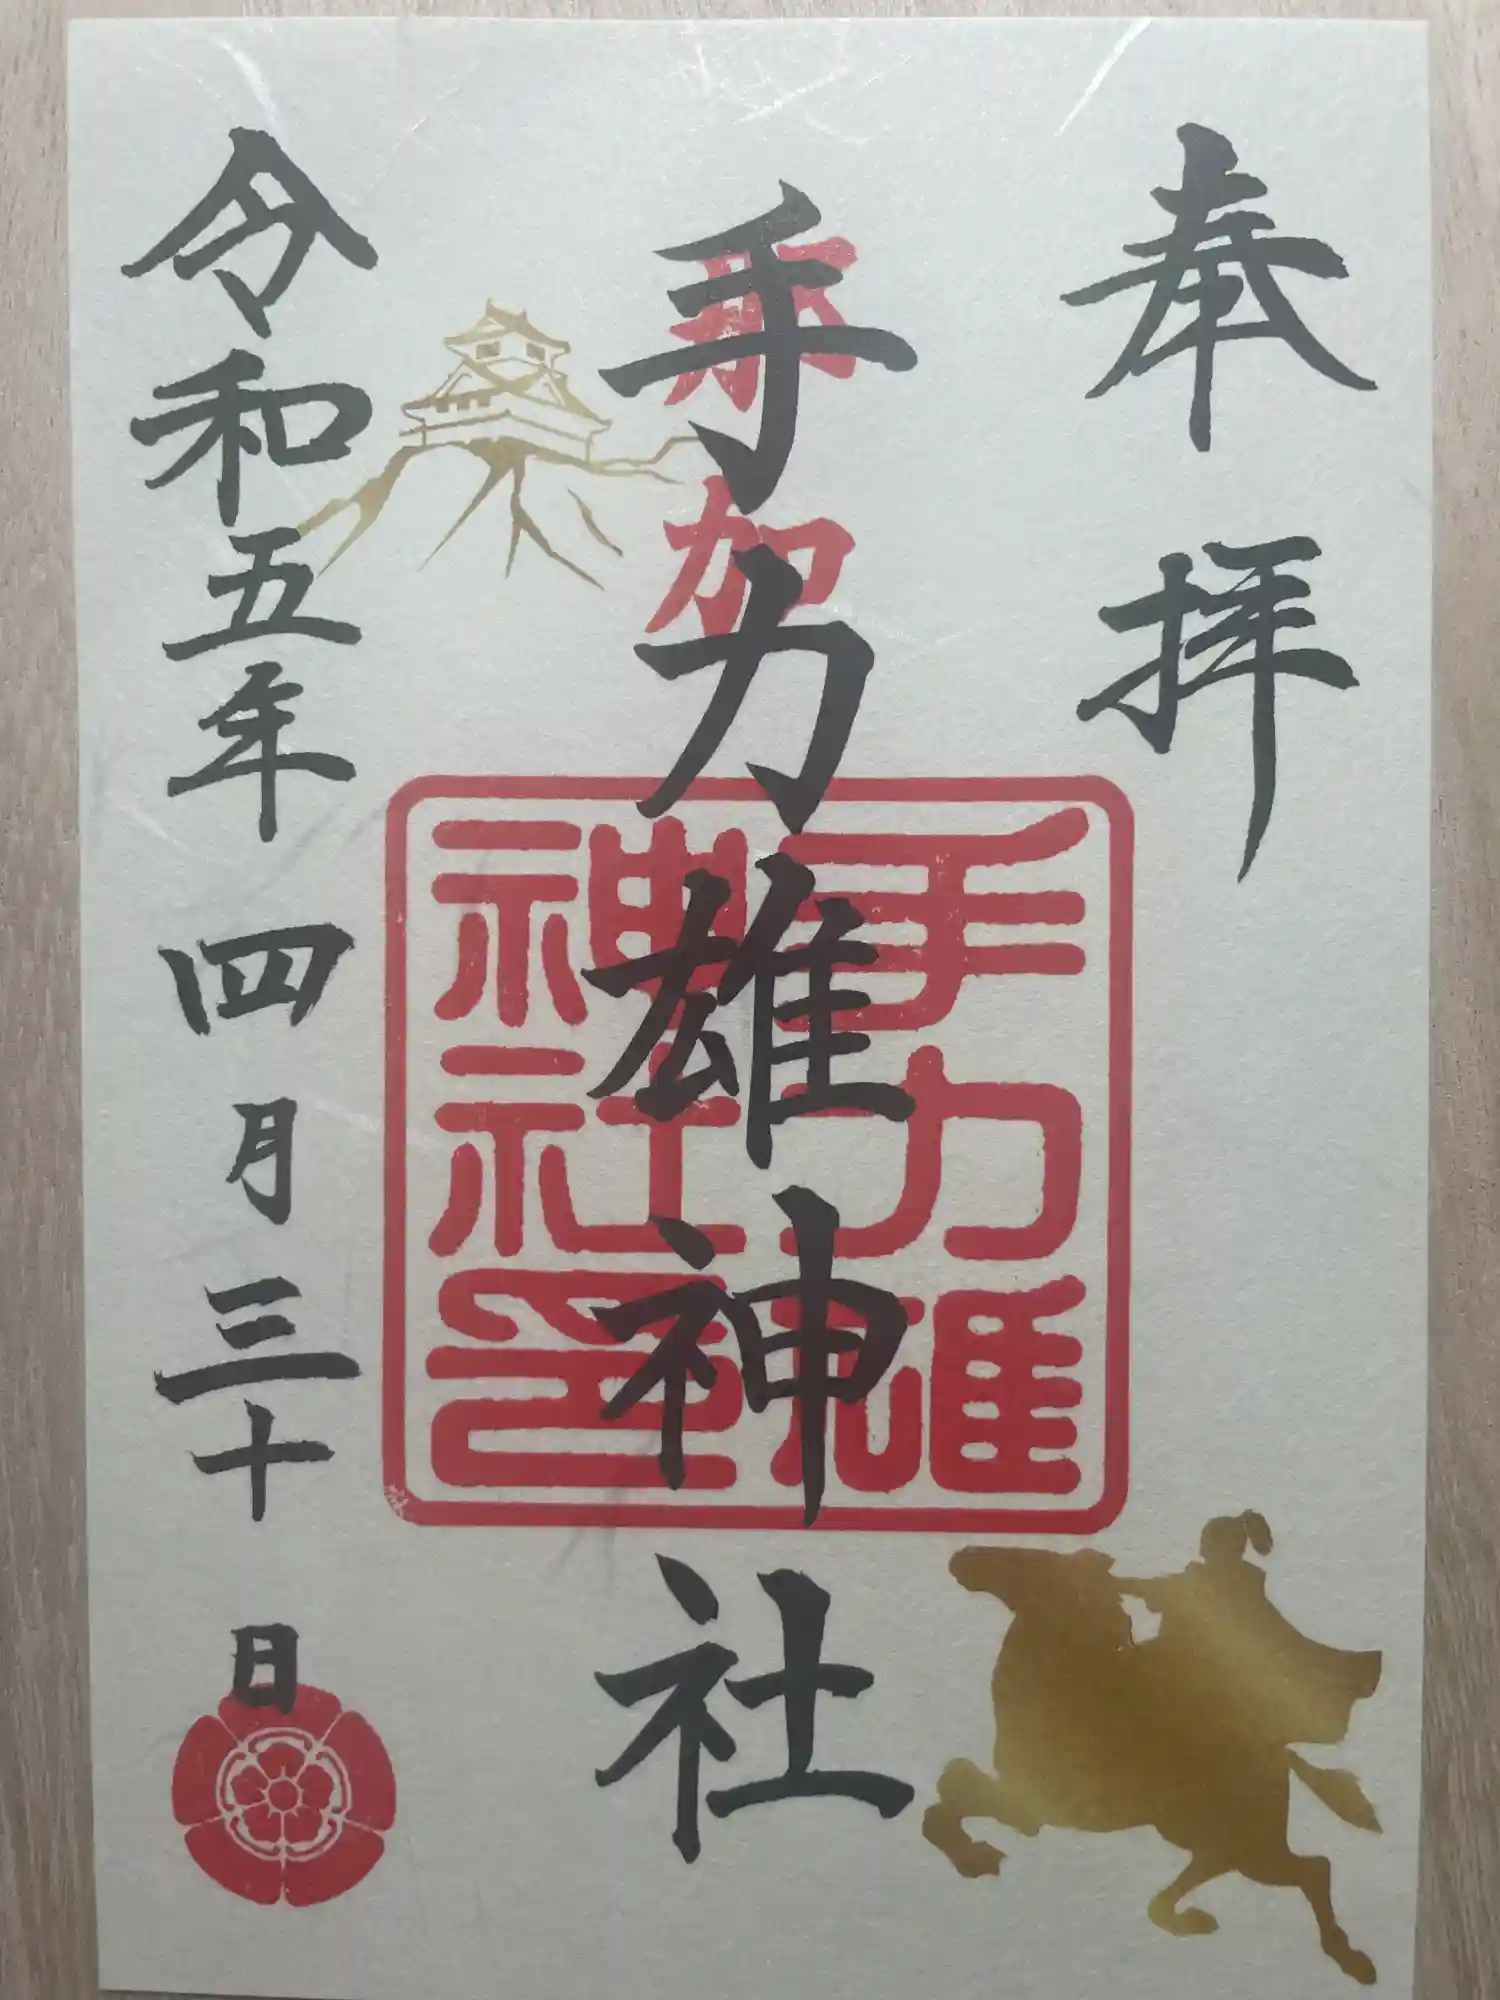 奉拝
那加
手力雄神社
手力雄
神社印
令和五年四月三十日